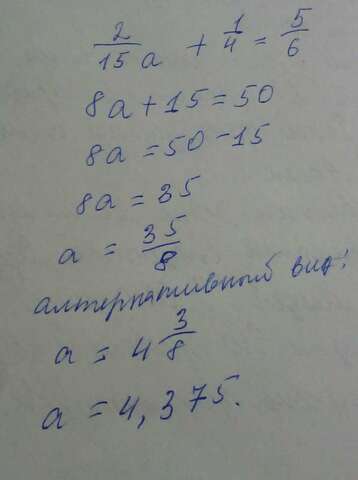 2/15 a + 1/4 = 5/6
8a + 15 = 50
8a = 50 - 15
8a = 35
a = 35/8
альтернативный вид:
a = 4 3/8
a = 4,375.